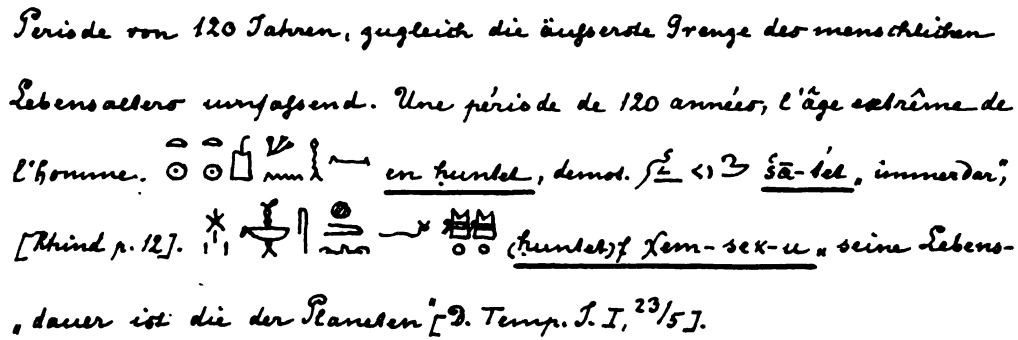 Periode von 120 Jahren, zugleich die äußerste Grenze des menschlichen
Lebensalters umfassend. Une période de 120 années, l'âge extrême de
l'homme. en ḥuntet, demot. „immerdar",
[Rhind p. 12]. (ḥuntet)f χem-seχ-u „seine Lebens-
„dauer ist die der Planeten" [D. Temp. I. I, 23/5].